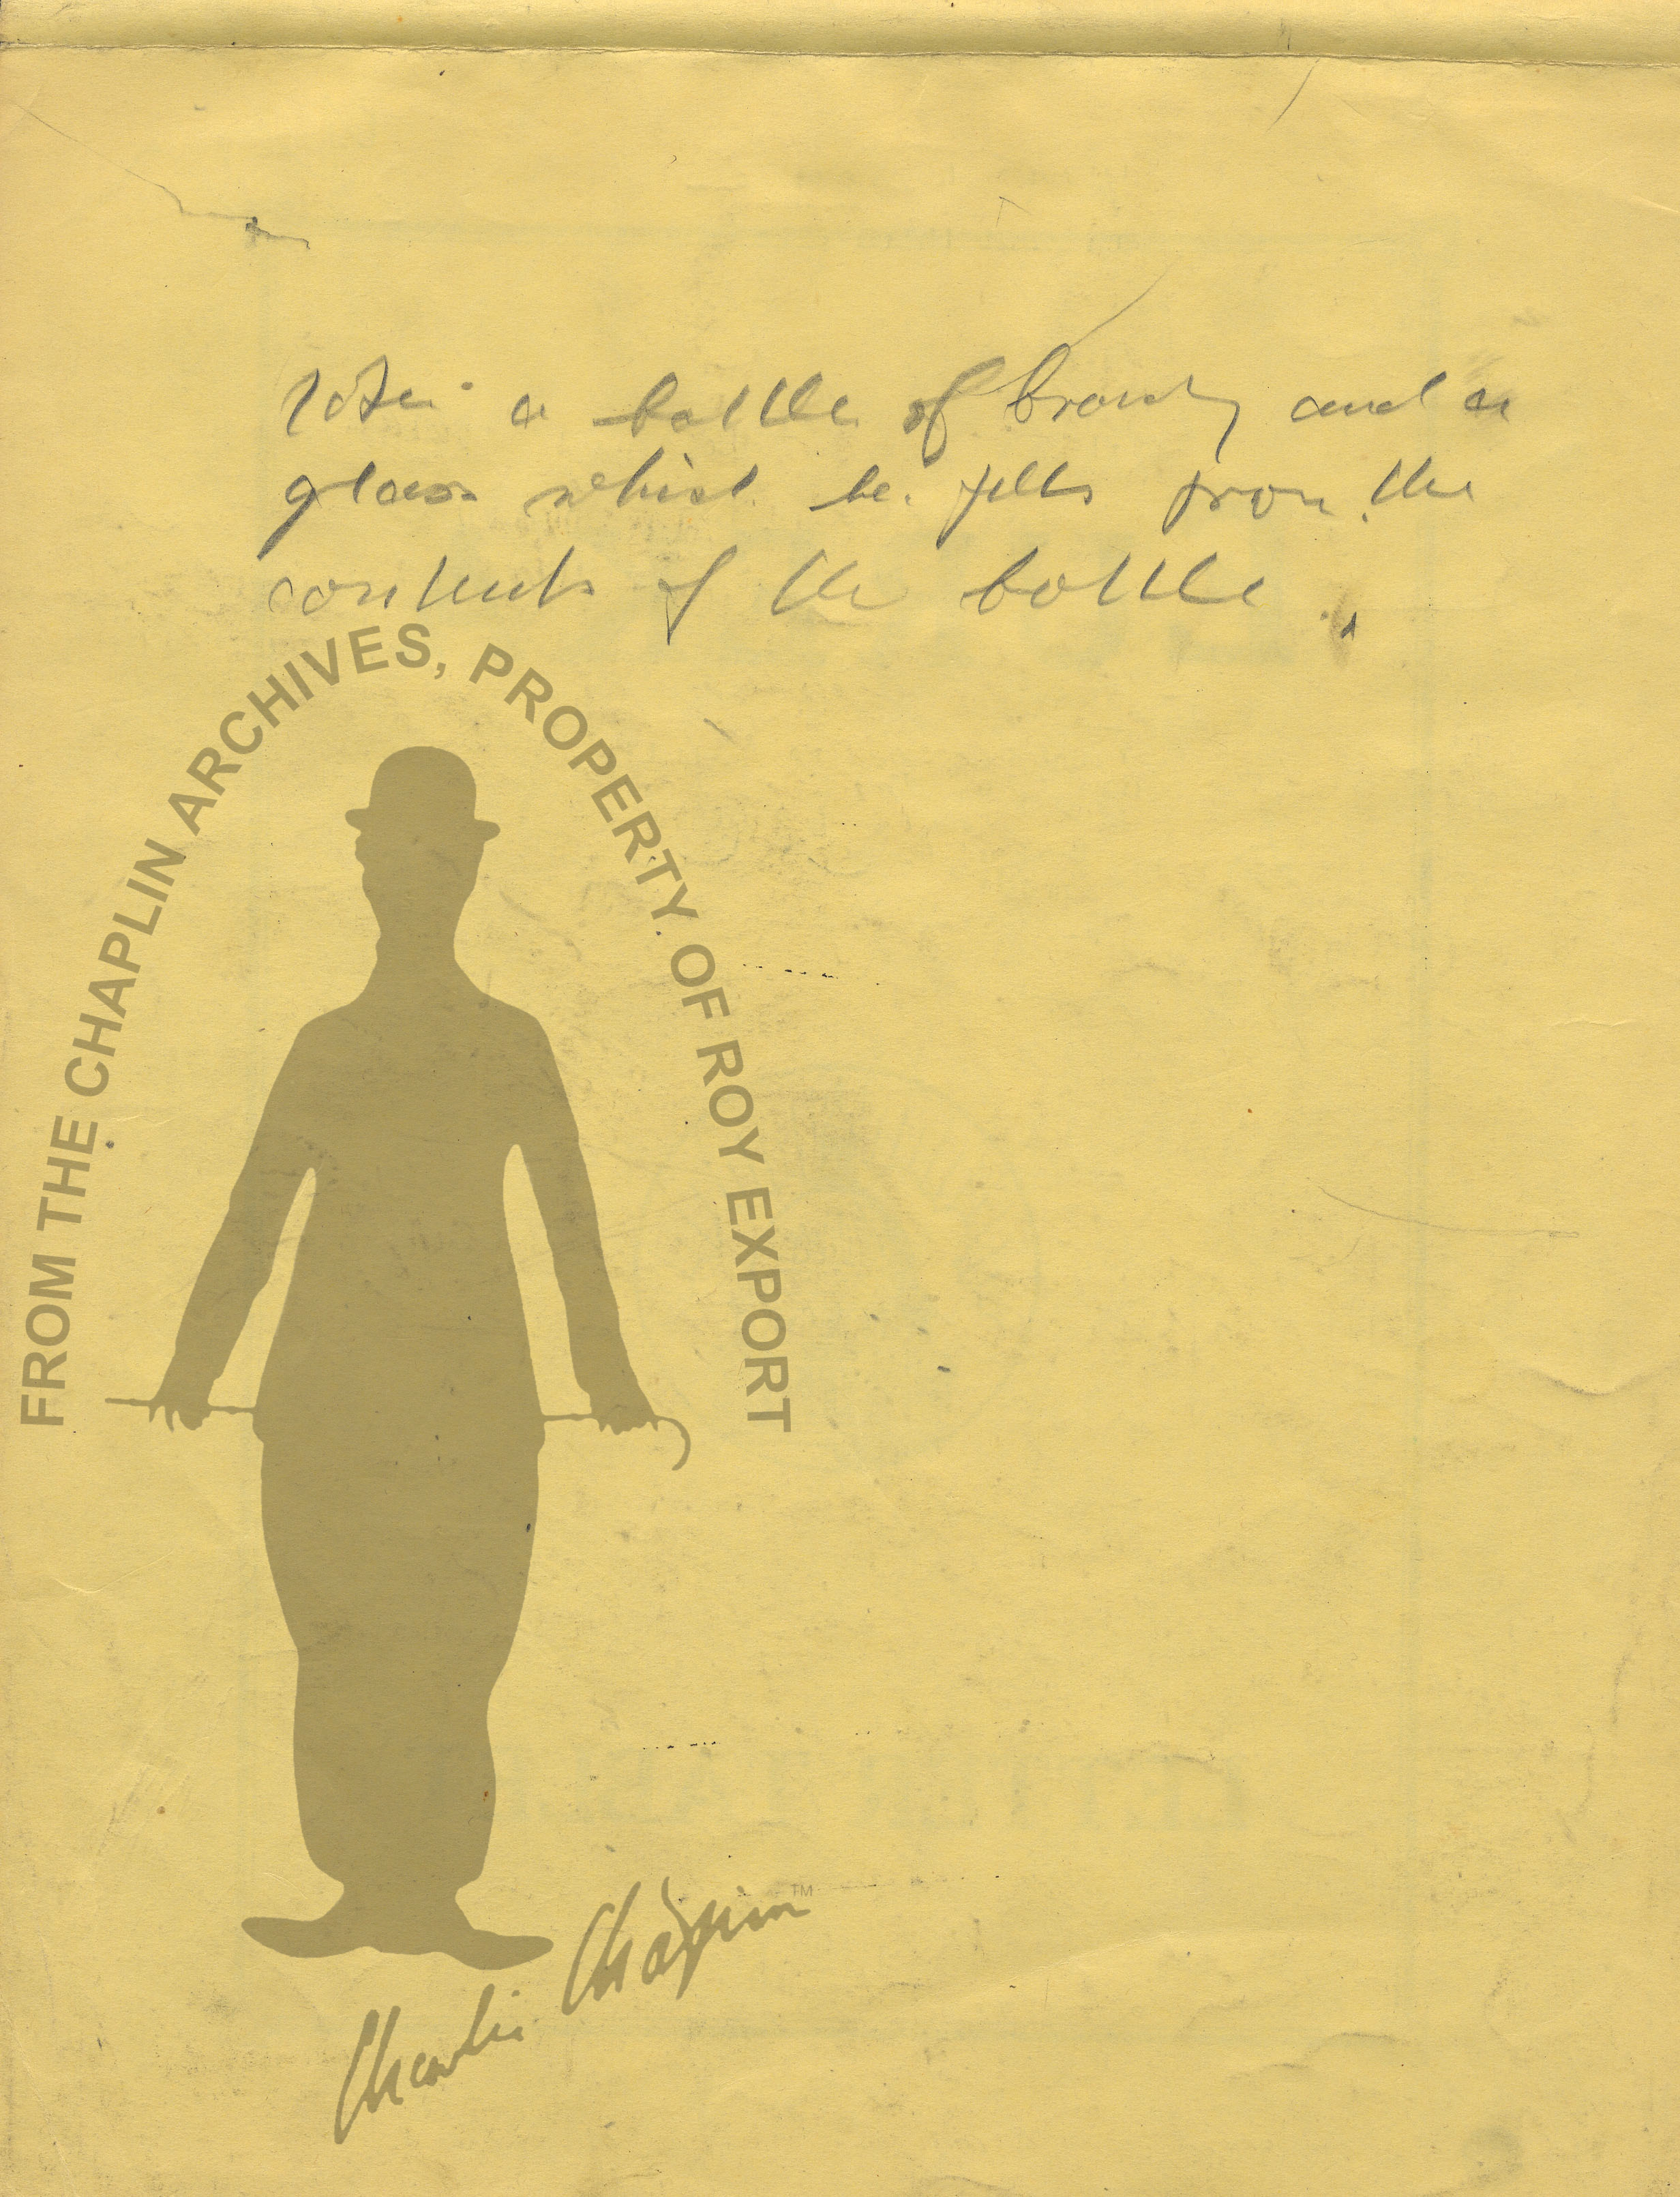 a bottle of brandy and a
glass which he fills from the
contents of the bottle.
FROM THE CHAPLIN ARCHIVES, PROPERTY OF ROY EXPORT
Charlie Chaplin TM